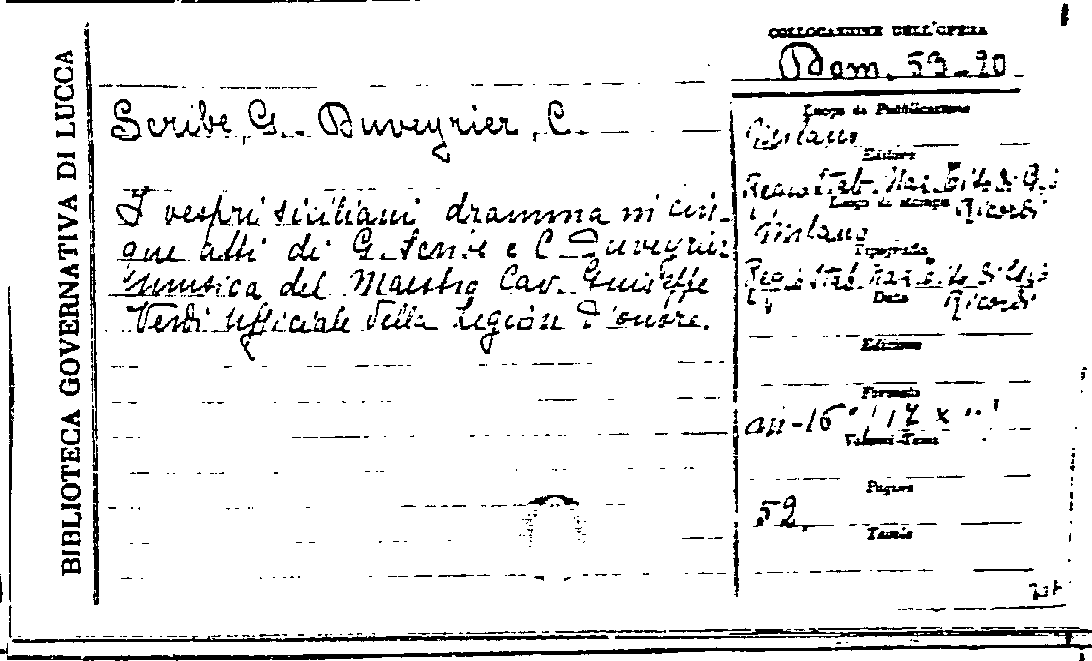 BIBLIOTECA GOVERNATIVA DI LUCCA
COLLOCAZIONE DELL'OPERA
53-20
Scribe, G. - Duveyrier, C.
I vespri siciliani dramma in cin-
que atti di G. Scribe e C. Duveyrier
musica del Maestro Cav. Giuseppe
Verdi ufficiale della Legion d'onore.
Luogo di Pubblicazione
Milano
Editore
Regio Stab. Naz. Tito di Gio
Ricordi
Luogo di stampa
Milano
Tipografo
Regio Stab. Naz. Tito di Gio
Ricordi
Data
Edizione
Formato
in-16° 17 x
Volumi-Tomi
Pagine
52.
Tavole